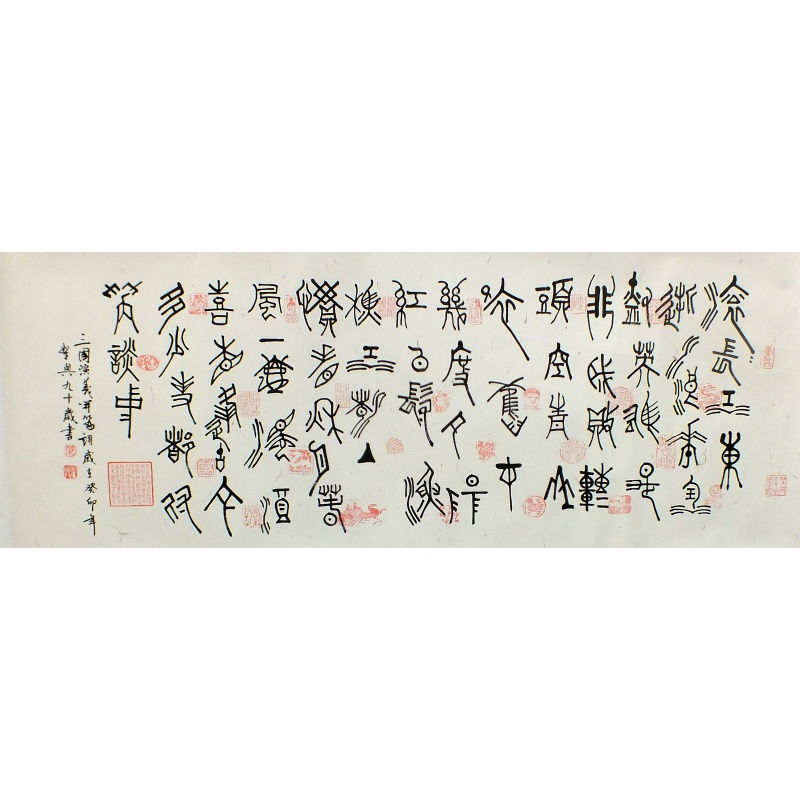 滾滾長江東
逝水浪花淘
盡英雄是
非成敗轉
頭空青山
依舊在
幾度夕陽
紅白髮漁
樵江渚上
慣看秋月春
風一壺濁酒
喜相逢古今
多少事都付
笑談中
三國演義開篇詞歲在癸卯年
九十歲書